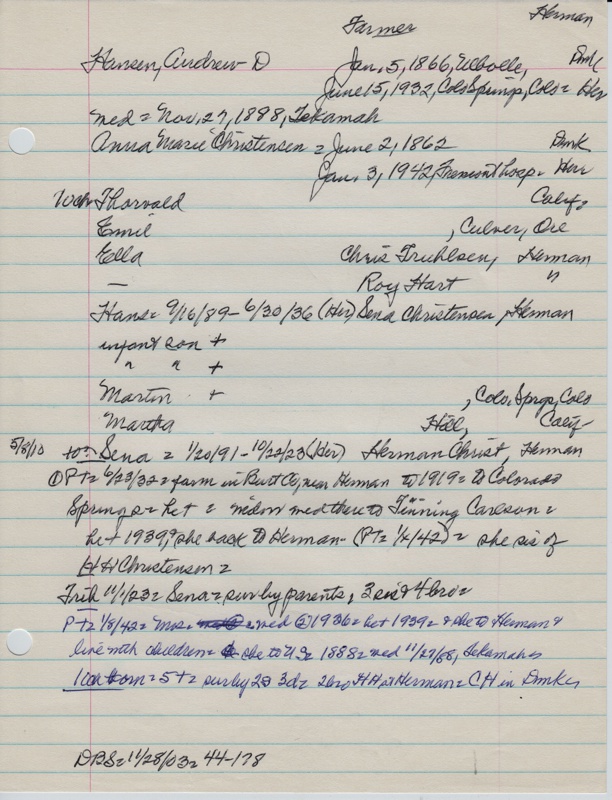 Farmer Herman
Hansen, Andrew D Jan. 5, 1866, Ulbolle, Dmk
June 15, 1932, Colo Springs, Colo = Her
med = Nov. 27, 1888, Tekamah
Anna Marie Christensen = June 2, 1862 Dmk
Jan. 3, 1942, Fremont hosp = Her
10ch Thorvald Calif.
Emil , Culver, Ore
Ella Chris Truhlsen, Herman
— Roy Hart "
Hans = 9/16/89 - 6/30/36 (Her) Sena Christensen, Herman
infant son +
" " +
Martin + , Colo. Sprgs, Colo
Martha Hill, Calif
5/8/10 to = Sena = 1/20/91 - 10/22/23 (Her) Herman Christ, Herman
① PT = 6/23/32 = farm in Burt Co, near Herman to 1919 = to Colorado
Springs = he + = widow med there to Carlson =
he + 1939, & she back to Herman - (PT = 1/8/42) = she sis of
H H Christensen =
Trib 11/1/23 = Sena = sur by parents, 3 sis & 4 bro =
PT = 1/8/42 = Mrs = med ② 1936 = he + 1939 = & she to Herman &
live with children = she to US = 1888 = med 11/27/88, Tekamah =
10ch born = 5 + = sur by 2s 3d = 2bro HH at Herman = CH in Dmk =
DBS = 11/28/03 = 44-178